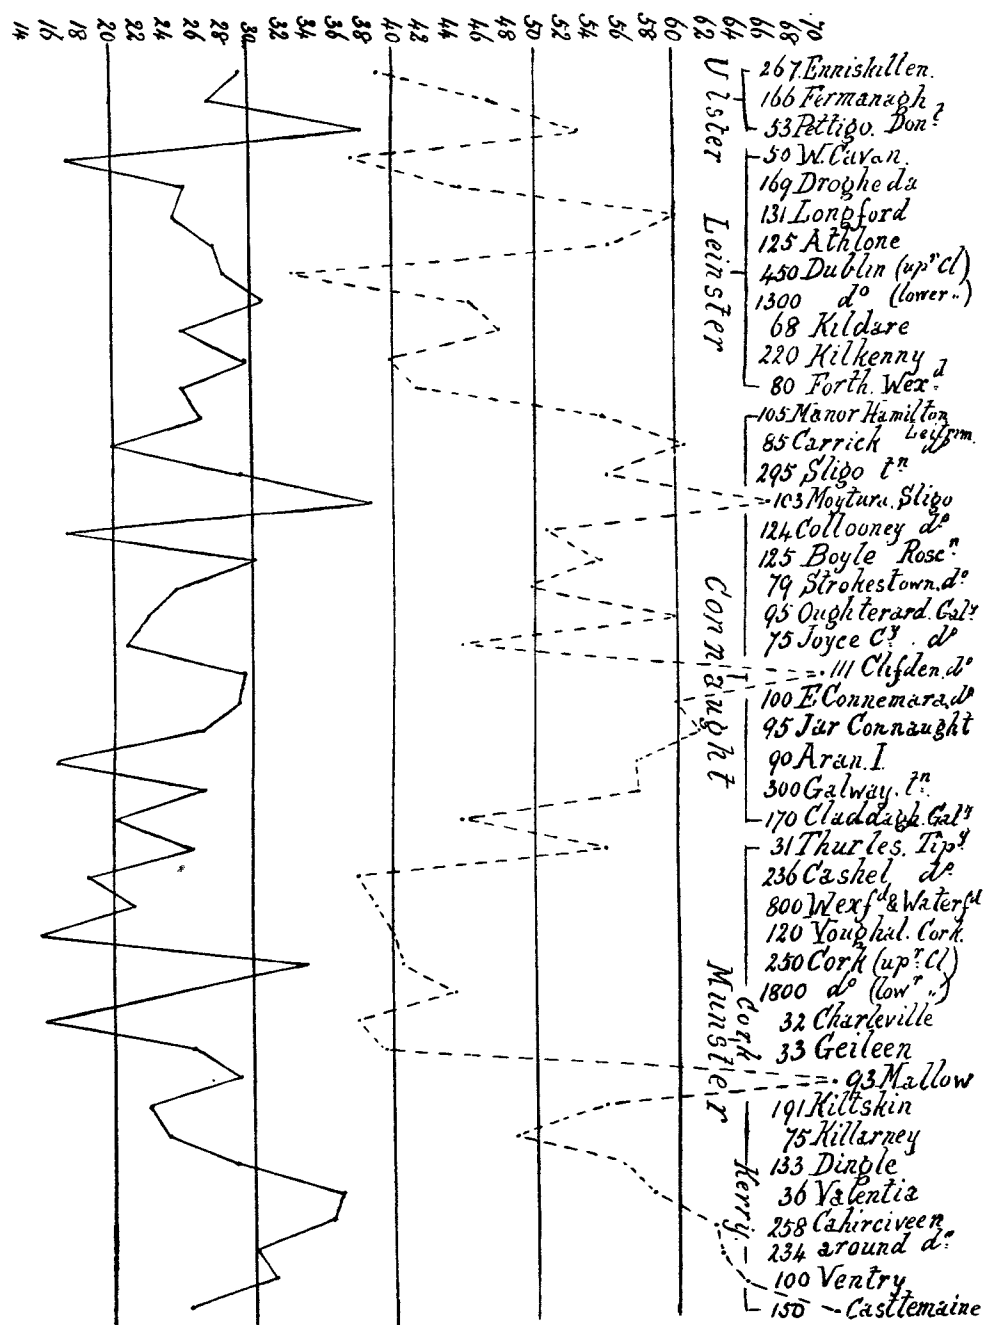 14 16 18 20 22 24 26 28 30 32 34 36 38 40 42 44 46 48 50 52 54 56 58 60 62 64 66 68 70
Ulster
267. Enniskillen.
166 Fermanagh
53 Pettigo. Don.l
Leinster
50 W. Cavan.
169 Drogheda
131 Longford
125 Athlone
450 Dublin (upr Cl)
1300 do (lower ")
68 Kildare
220 Kilkenny
80 Forth. Wex.d
Connaught
105 Manor Hamilton
Leitrm.
85 Carrick do
295 Sligo tn
103 Moytura. Sligo
124 Collooney do
125 Boyle Rosc.n
79 Strokestown. do
95 Oughterard. Galy
75 Joyce Cy. do
111 Clifden. do
100 E Connemara. do
95 Jar Connaught
90 Aran. I.
300 Galway. tn.
170 Claddagh. Galy
Munster
31 Thurles. Tipy
236 Cashel do
800 Wexfd & Waterfd
Cork
120 Youghal. Cork.
250 Cork (upr Cl)
1800 do (lowr ")
32 Charleville
33 Geileen
93 Mallow
191 Kiltskin
Kerry.
75 Killarney
133 Dingle
36 Valentia
258 Cahirciveen
234 around do
100 Ventry
150 Casttemaine